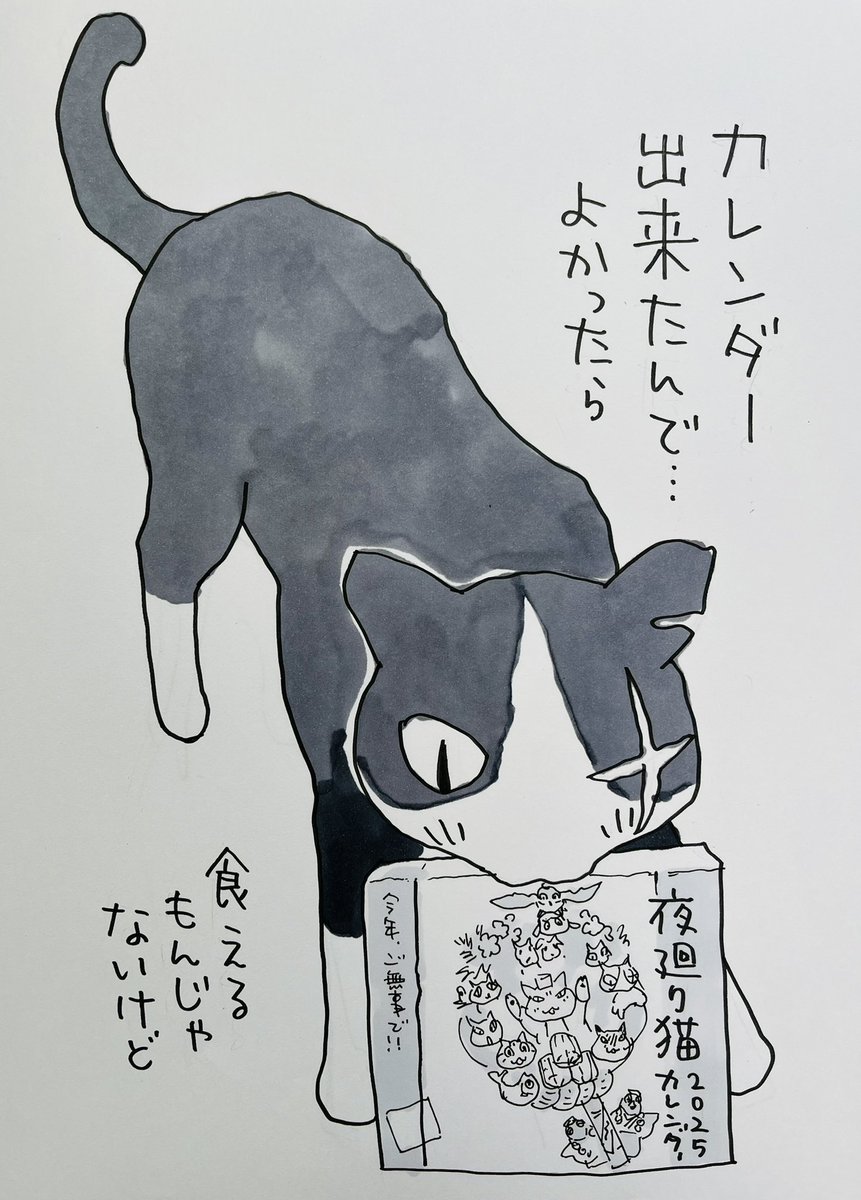 カレンダー
出来たんで…
よかったら
食える
もんじゃ
ないけど
夜廻り猫
2025
カレンダー
今年、ご無事で!!